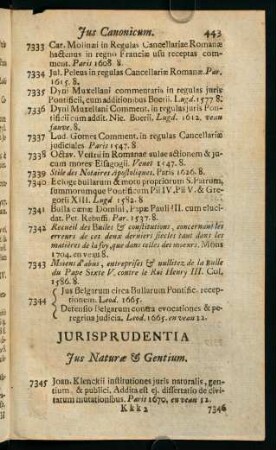 Jus Canonicum. 443
7333 Car. Molinæi in Regulas Cancellariæ Romanæ
hactenus in regno Franciæ usu receptas com-
ment. Paris 1608. 8.
7334 Jul. Peleus in regulas Cancellariæ Romanæ. Par.
1615. 8.
7335 Dyni Muxellani commentaris in regulas juris
Pontificii, cum additionibus Boerii. Lugd. 1577. 8.
7336 Dyni Muxellani Comment. in regulas juris Ponti-
ficii cum addit. Nic. Boerii. Lugd. 1612. veau
fauve. 8.
7337 Lud. Gomes Comment. in regulas Cancellariæ
judiciales Paris 1547. 8.
7338 Octav. Vestrii in Romanæ aulæ actionem & ju-
dicum morem Eisagogii. Venet 1547. 8.
7339 Stile des Notaires Apostoliques, Paris 1626. 8.
7340 Ecloge bullarum & motu propriorum S. Patrum,
summorumque Pontificum Pii IV. Pii V. & Gre-
gorii XIII. Lugd 1582. 8.
7341 Bulla cœnæ Domini, Papæ Pauli III. cum eluci-
dat. Per. Rebuffi. Par. 1537. 8.
7342 Recueil des Bulles & constitutions, concernant les
erreurs de ces deux derniers siecles tant dans les
matiéres de la foy, que dans celles des moeurs. Mons
1704. en veau 8.
7343 Moiens d'abus, entreprises & nullitez, de la Bulle
du Pape Sixte V. contre le Roi Henry III. Col.
1586. 8.
Jus Belgarum circa Bullarum Pontific. recep-
tionem. Leod. 1665.
7344
Defensio Belgarum contra evocationes & pe-
regrina judicia. Leod. 1665. en veau 12.
JURISPRUDENTIA
Jus Naturæ & Gentium.
7345 Joan. Klenckii institutiones juris naturalis, gen-
tium, & publici. Addita est ej. dissertatio de civi-
tatum mutationibus. Paris 1670, en veau 12.
Kkk2 7346